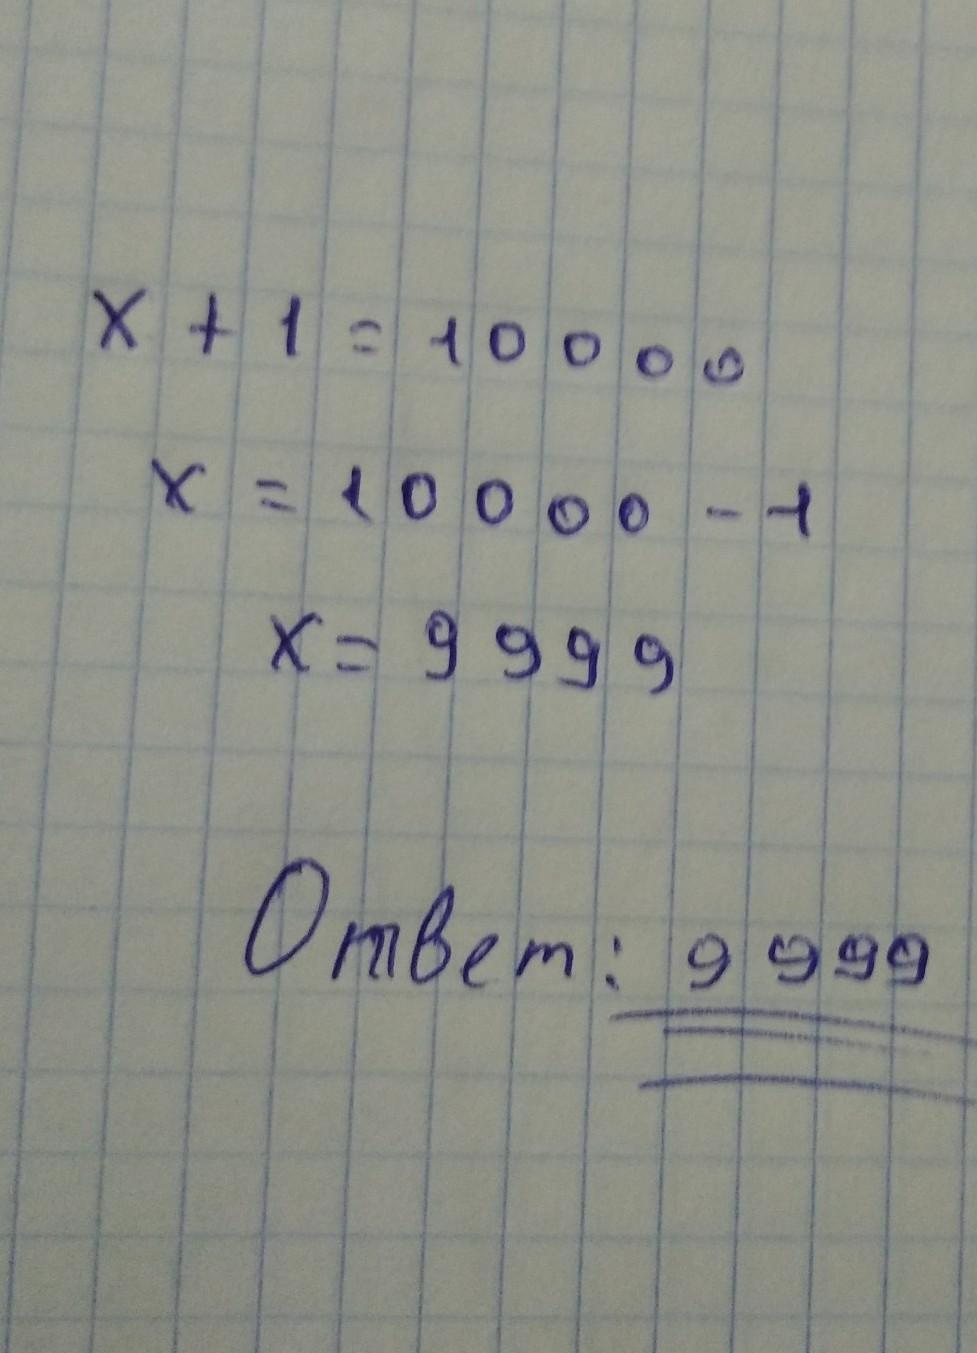 x + 1 = 10000
x = 10000 - 1
x = 9999
Ответ: 9999